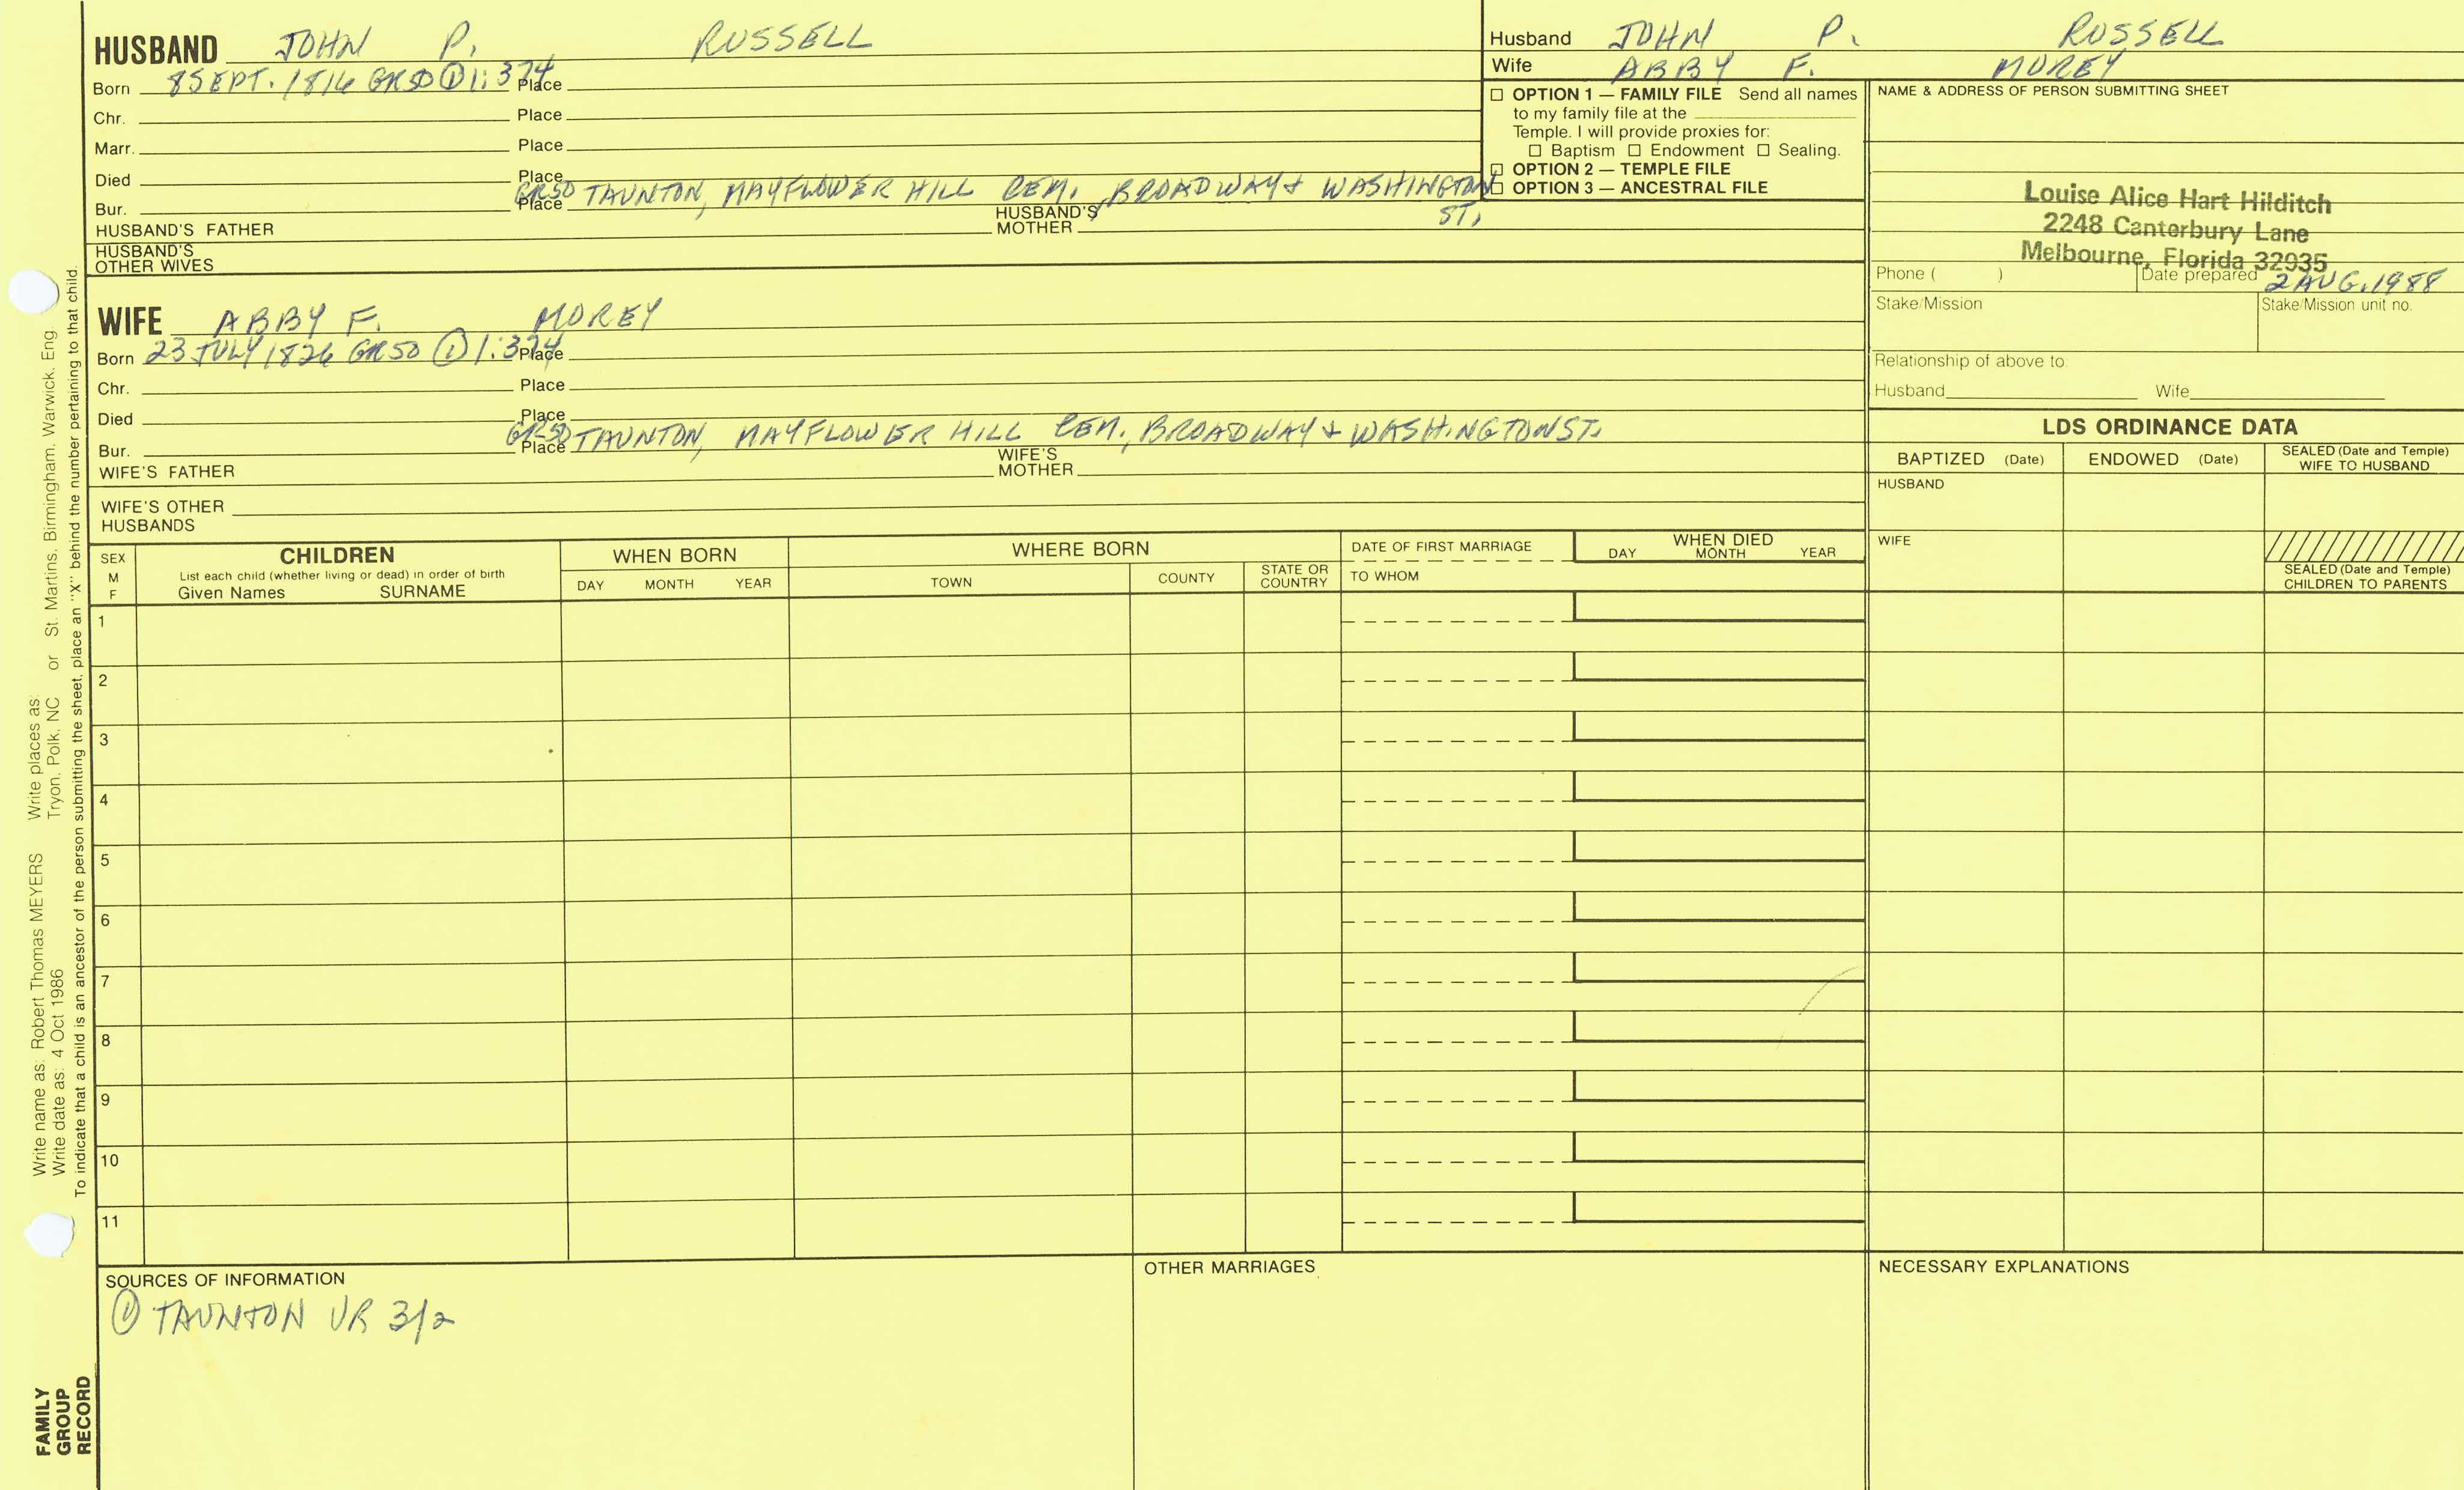 HUSBAND JOHN P. RUSSELL
Born 8 SEPT. 1816 GR50 ① 1:374 Place
Chr. Place
Marr. Place
Died Place
Bur. Place GR50 TAUNTON, MAYFLOWER HILL CEM., BROADWAY & WASHINGTON ST.
HUSBAND'S FATHER HUSBAND'S MOTHER
HUSBAND'S OTHER WIVES
WIFE ABBY F. MOREY
Born 23 JULY 1826 GR50 ① 1:374 Place
Chr. Place
Died Place
Bur. Place GR50 TAUNTON, MAYFLOWER HILL CEM., BROADWAY & WASHINGTON ST.
WIFE'S FATHER WIFE'S MOTHER
WIFE'S OTHER HUSBANDS
Husband JOHN P. RUSSELL
Wife ABBY F. MOREY
☐ OPTION 1 — FAMILY FILE Send all names
to my family file at the
Temple. I will provide proxies for:
☐ Baptism ☐ Endowment ☐ Sealing.
☐ OPTION 2 — TEMPLE FILE
☐ OPTION 3 — ANCESTRAL FILE
NAME & ADDRESS OF PERSON SUBMITTING SHEET
Louise Alice Hart Hilditch
2248 Canterbury Lane
Melbourne, Florida 32935
Phone ( ) Date prepared 2 AUG. 1988
Stake/Mission Stake/Mission unit no.
Relationship of above to:
Husband Wife
LDS ORDINANCE DATA
BAPTIZED (Date) ENDOWED (Date) SEALED (Date and Temple) WIFE TO HUSBAND
HUSBAND
WIFE
SEALED (Date and Temple)
CHILDREN TO PARENTS
SEX M F CHILDREN
List each child (whether living or dead) in order of birth
Given Names SURNAME
WHEN BORN
DAY MONTH YEAR
WHERE BORN
TOWN COUNTY STATE OR COUNTRY
DATE OF FIRST MARRIAGE
TO WHOM
WHEN DIED
DAY MONTH YEAR
1
2
3
4
5
6
7
8
9
10
11
SOURCES OF INFORMATION
① TAUNTON VR 3/2
OTHER MARRIAGES
NECESSARY EXPLANATIONS
Write name as: Robert Thomas MEYERS Write places as:
Write date as: 4 Oct 1986 Tryon, Polk, NC or St. Martins, Birmingham, Warwick, Eng
To indicate that a child is an ancestor of the person submitting the sheet, place an "X" behind the number pertaining to that child.
FAMILY
GROUP
RECORD